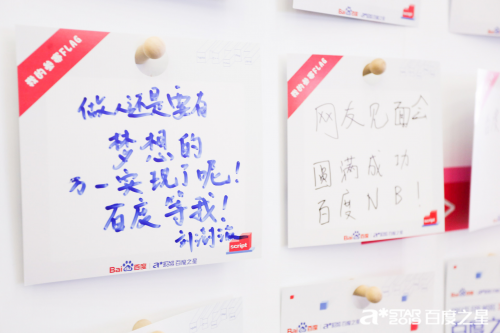 我的参赛FLAG
做人还是要有
梦想的
万一实现了呢!
百度等我!
script
Bai百度
百度之星
我的参赛FLAG
网友见面会
圆满成功
百度NB!
script
Bai百度
百度之星
百度之星